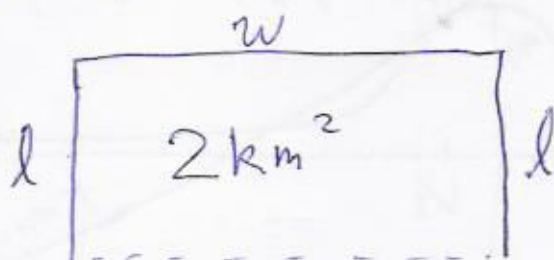 w
l 2km² l